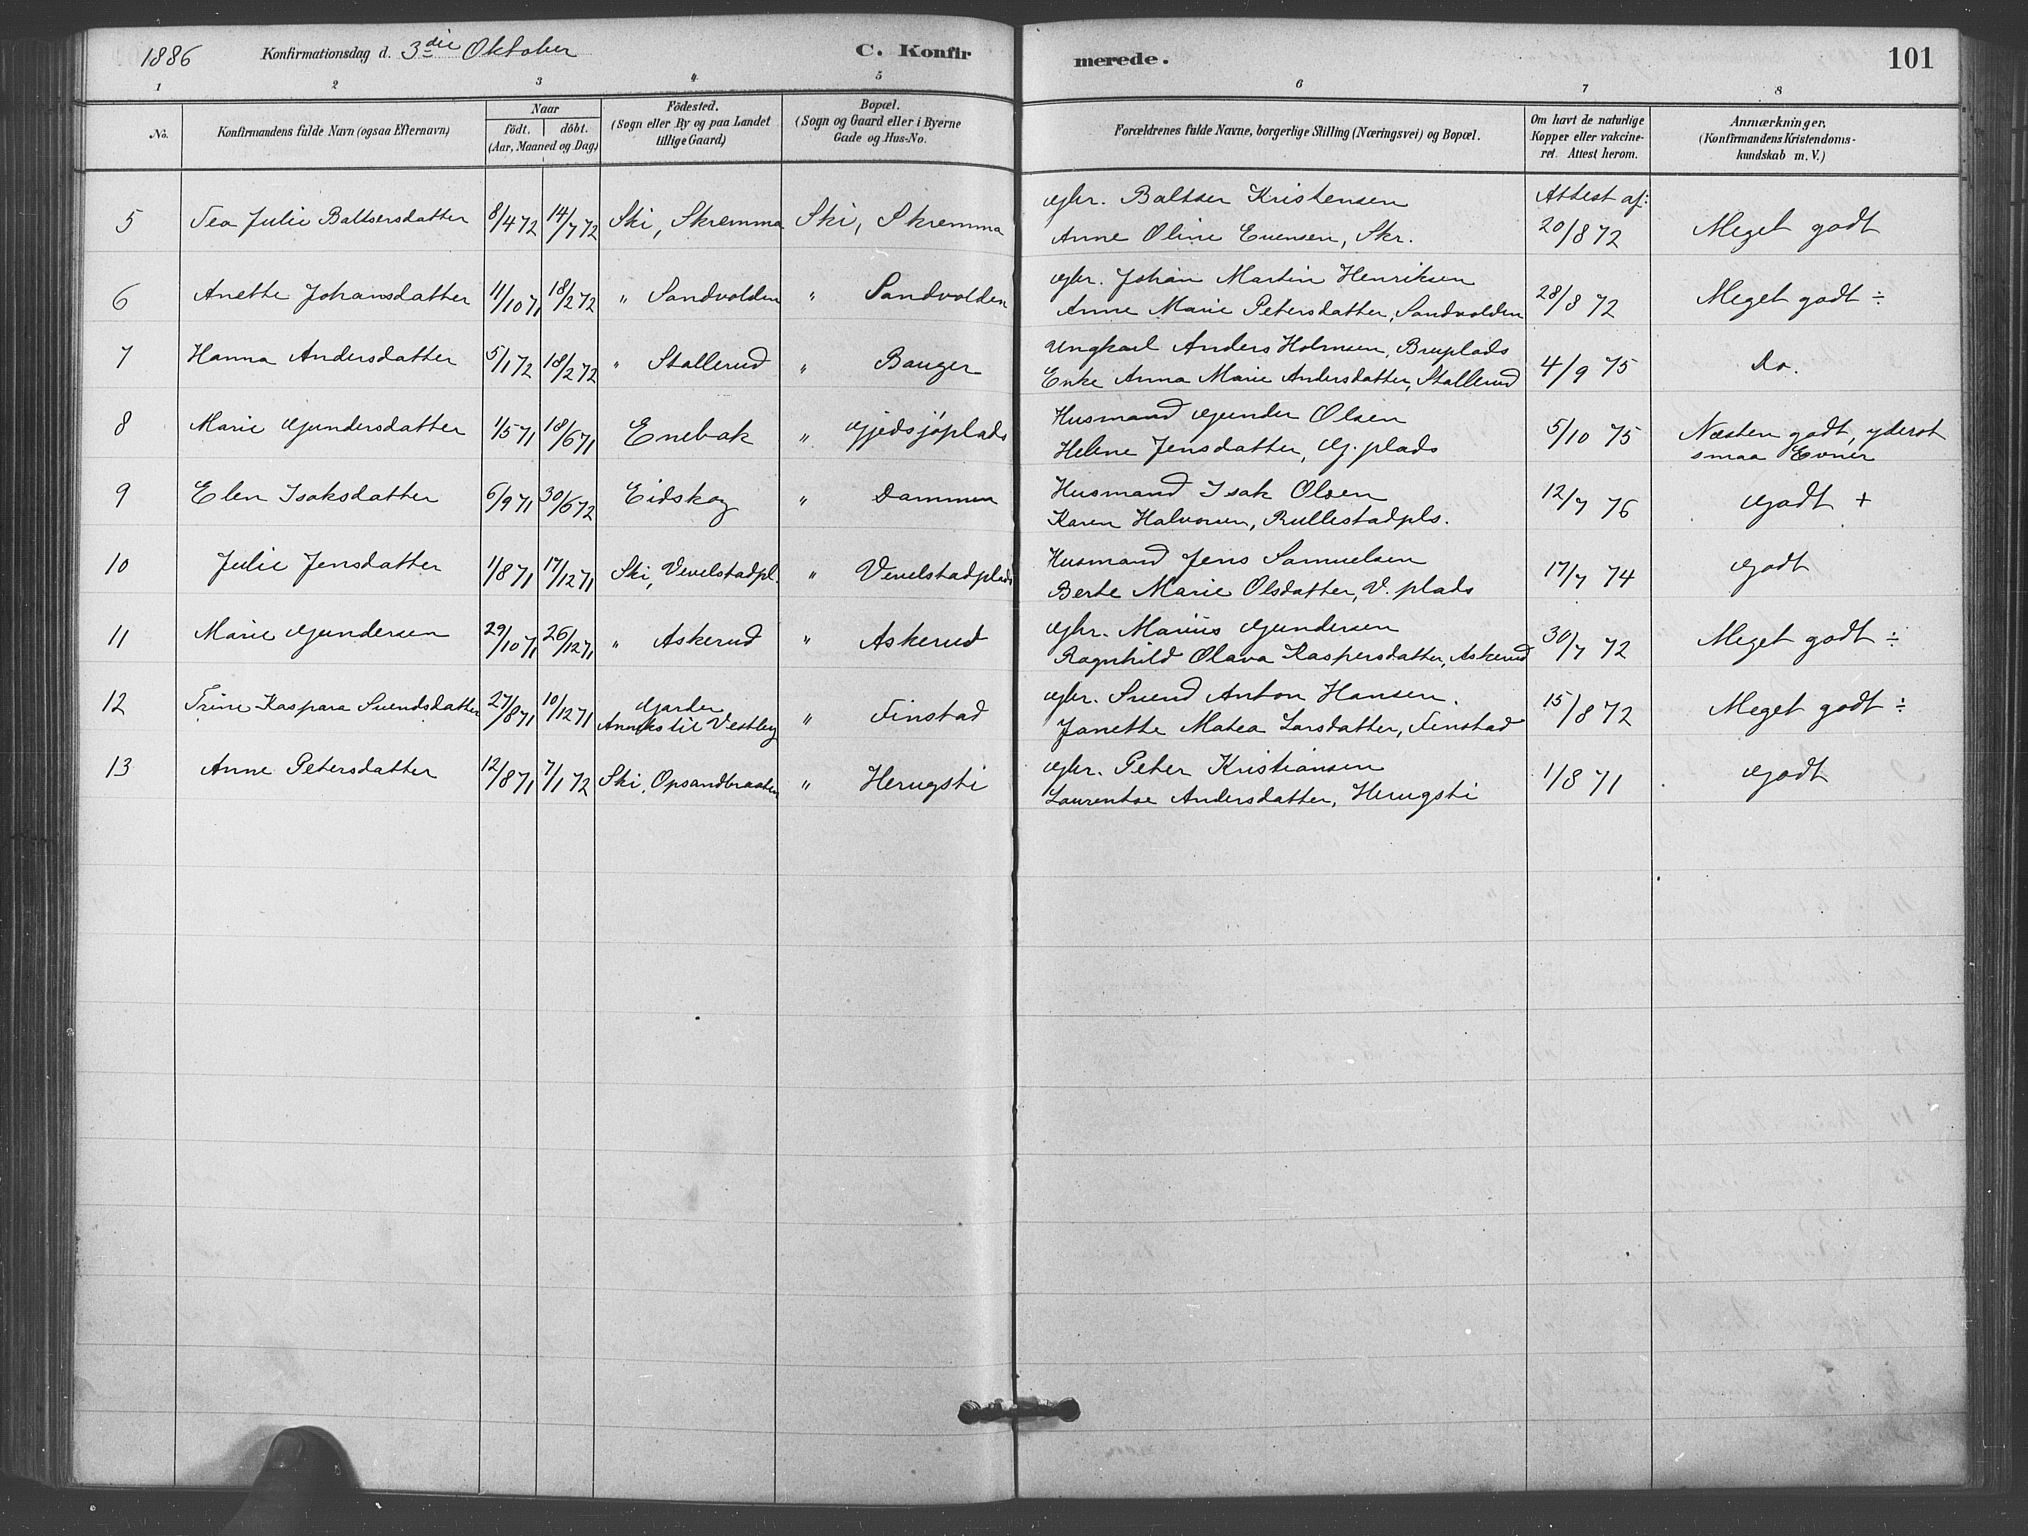 1886 Konfirmationsdag d. 3die Oktober C. Konfirmerede. 101
1 2 3 4 5 6 7 8
No. Konfirmandens fulde Navn (ogsaa Efternavn) Naar født. døbt. (Aar, Maaned og Dag) Födested. (Sogn eller By og paa Landet tillige Gaard) Bopæl. (Sogn og Gaard eller i Byerne Gade og Hus-No. Forældrenes fulde Navne, borgerlige Stilling (Næringsvei) og Bopæl. Om havt de naturlige Kopper eller vakcineret. Attest herom. Anmærkninger. (Konfirmandens Kristendomskundskab m. V.)
5 Tea Julie Baltsersdatter 8/4 72 14/7 72 Ski, Skremma Ski, Skremma Gbr. Baltser Kristensen Attest af: Meget godt
Anne Oline Evensen, Skr. 20/8 72
6 Anette Johansdatter 11/10 71 18/2 72 " Sandvolden " Sandvolden Gbr. Johan Martin Henriksen 28/8 72 Meget godt ÷
Anne Marie Petersdatter, Sandvolden
7 Hanna Andersdatter 5/1 72 18/2 72 " Stallerud " Bauger Ungkarl Anders Holmsen, Bruplads 4/9 75 Do.
Enke Anna Marie Andersdatter, Stallerud
8 Marie Gundersdatter 1/5 71 18/6 71 Enebak " Gjedsjöplads Husmand Gunder Olsen 5/10 75 Næsten godt, yderst
Helene Jensdatter, Gj. plads smaa Evner
9 Elen Isaksdatter 6/9 71 30/6 72 Eidskog " Dammen Husmand Isak Olsen 12/7 76 Godt +
Karen Halvorsen, Rullestadpls.
10 Julie Jensdatter 1/8 71 17/12 71 Ski, Vevelstadpl. " Vevelstadplads Husmand Jens Samuelsen 17/7 74 Godt
Berte Marie Olsdatter, V. plads
11 Marie Gundersen 29/10 71 26/12 71 " Askerud " Askerud Gbr. Marius Gundersen 30/7 72 Meget godt ÷
Ragnhild Olava Kaspersdatter, Askerud
12 Trine Kaspara Svendsdatter 27/8 71 10/12 71 Garder " Finstad Gbr. Svend Anton Hansen. 15/8 72 Meget godt ÷
Anneks til Vestby Janette Matea Larsdatter, Finstad
13 Anne Petersdatter 12/8 71 7/1 72 Ski, Opsandbraaten " Herugsti Gbr. Peter Kristiansen 1/8 71 Godt
Laurentse Andersdatter, Herugsti